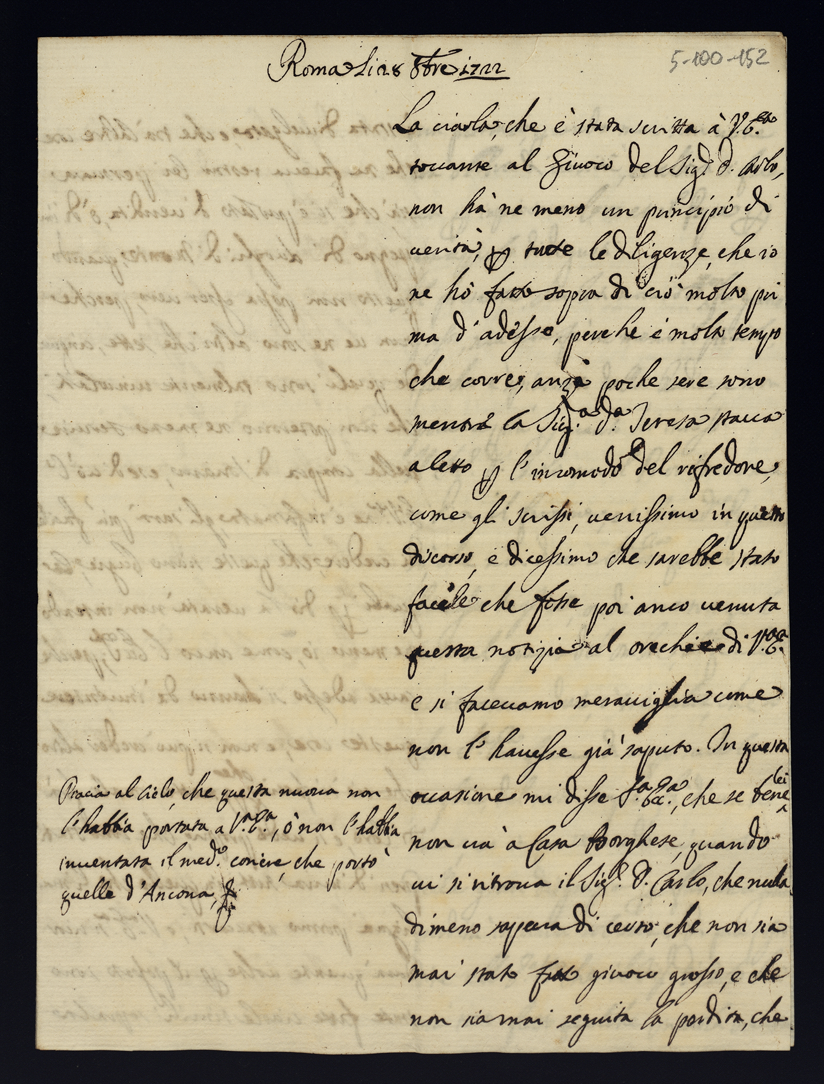 Roma li 28 8bre 1722
5-100-152
La ciarla, che è stata scritta à V. E.za
toccante al Giuoco del Sig.r D. Carlo,
non hà ne meno un principio di
verità, p tutte le diligenze, che io
ne hò fatte sopra di ciò molto pri
ma d'adesso, perche è molto tempo
che corre, anzi poche sere sono
mentre la Sig.ra D.a Teresa stava
a letto p l'incomodo del rifredore,
come gli scrissi, venissimo in questo
discorso, e dicessimo che sarebbe stato
facile che fosse poi anco venuta
questa notizia al orechie di V.a E.a
e si facevamo meraviglia come
non l'havesse già saputo. In questa
occasione mi disse S.a Ecc.a, che se bene lei
non và à Casa Borghese, quando
vi si ritrova il Sig.r D. Carlo, che nulla
dimeno sapeva di certo, che non sia
mai stato fatto giuoco grosso, e che
non sia mai seguita la perdita, che
Piacia al Cielo, che questa nuova non
l'habbia portata a V.a E.a, ò non l'habbia
inventata il med.o coriere, che portò
quelle d'Ancona,